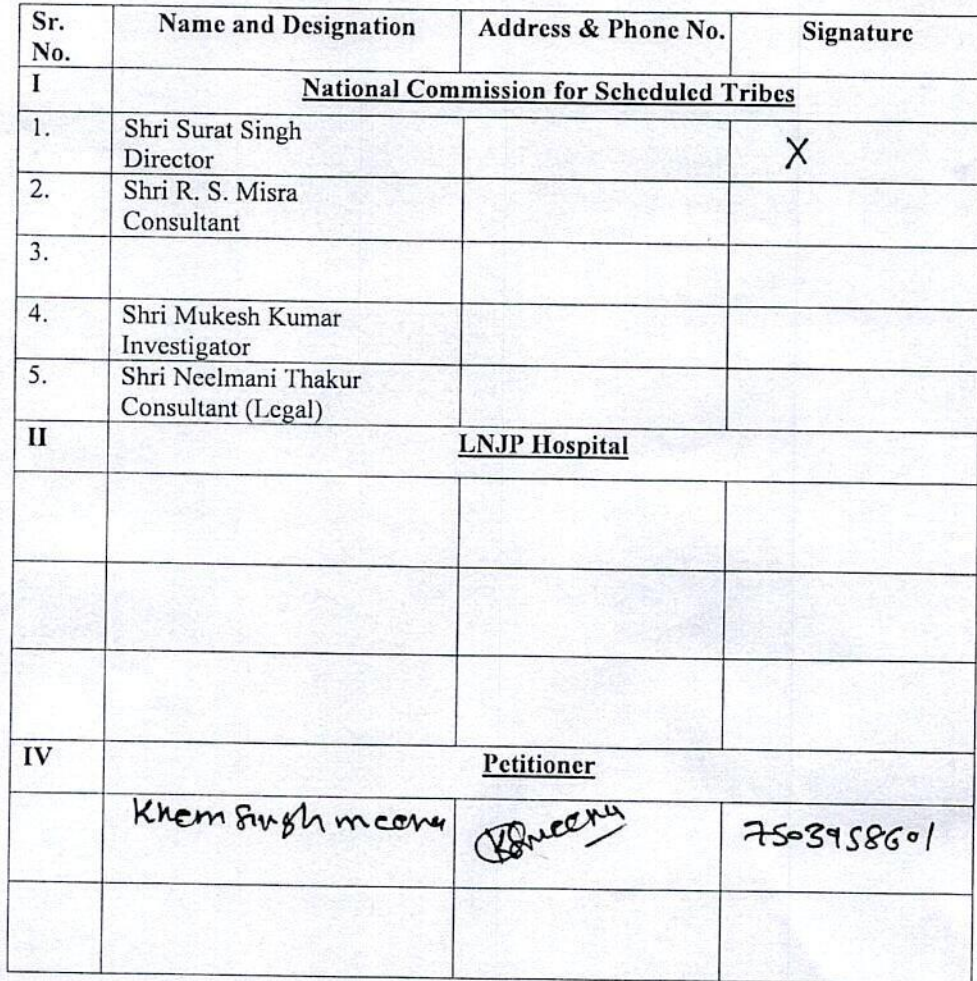 Sr. No.
Name and Designation
Address & Phone No.
Signature
I
National Commission for Scheduled Tribes
1.
Shri Surat Singh
Director
X
2.
Shri R. S. Misra
Consultant
3.
4.
Shri Mukesh Kumar
Investigator
5.
Shri Neelmani Thakur
Consultant (Legal)
II
LNJP Hospital
IV
Petitioner
Khem Singh meena
KSmeena
7503958601